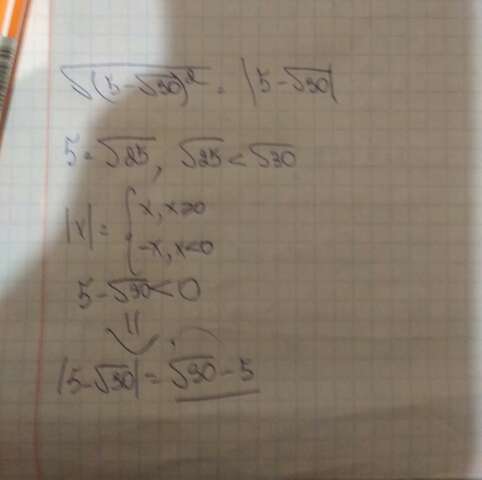 √(5-√30)² = |5-√30|
5=√25, √25<√30
|x|= { x, x≥0
-x, x<0
5-√30<0
⇓
|5-√30|=√30-5